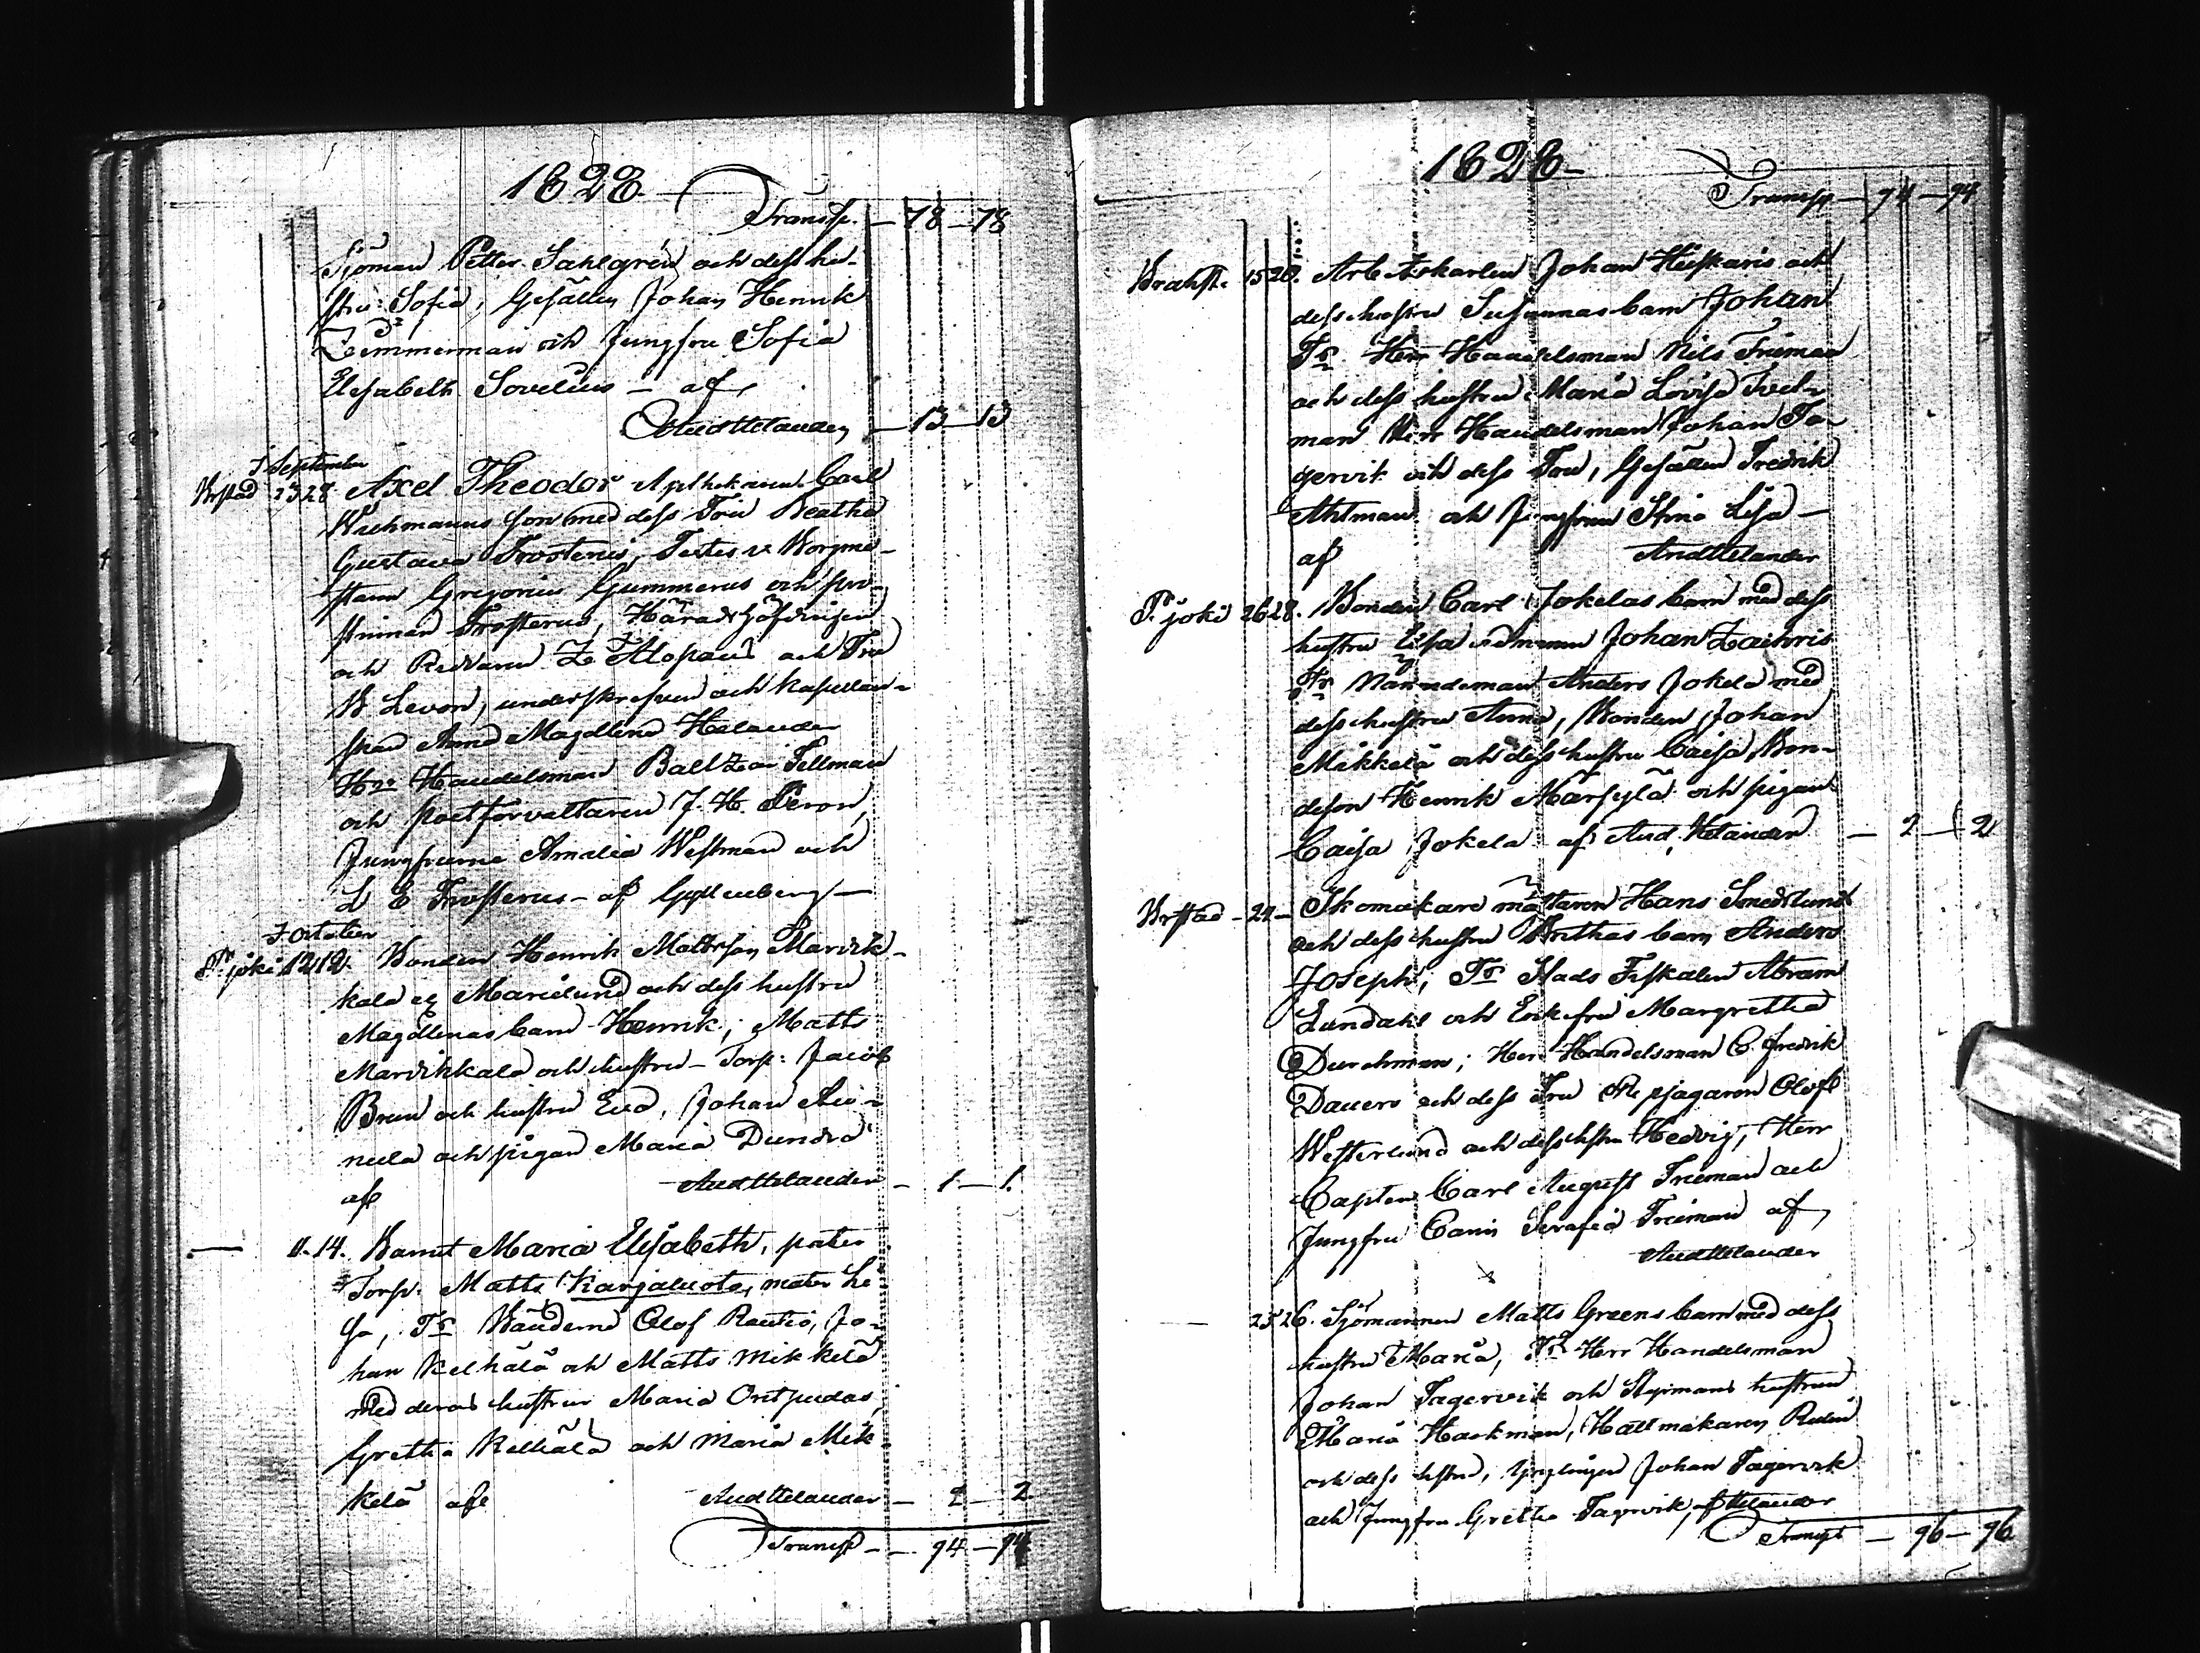 1828
Transp. — 78 — 78
Sjöman Petter Sahlgrén och dess hu-
stru Sofia, Gesällen Johan Henrik
Zimmerman och Jungfru Sofia
Elisabeth Sovelius — af
And Helander — 13 — 13
I September
Brstad 2528 Axel Theodor Apthekaren Carl
Wichmanns son med dess Fru Beatha
Gustava Frosterus, Testes v Borgmä-
staren Gregorius Gummerus och pro-
stinnan Frosterus, Häradshöfdingen
och Riddaren Z Alopæus och Fru
B Levon, underskrefven och Kapellan-
skan Anna Magdlena Helander
Hr Handelsman Baltzar Fellman
och postförvaltaren J. H. Levon,
Jungfrurne Amalia Westman och
L E Frosterus — af Gyllenberg —
I October
P. joki 12 12 Bonden Henrik Mattsson Marvik-
kala Marielund och dess hustru
Magdlenas barn Henrik; Matts
Marvikkala och hustru — Torp: Jacob
Brun och hustru Eva, Johan
nula och pigan Maria Dundra
af And Helander — 1 — 1.
— 11. 14. Barnet Maria Elisabeth, pater
Torp: Matts Karjaluoto, mater Li-
sa, Tr Bönderne Olof Rautio, Jo-
han Kelhälä och Matts Mikkelä
med deras hustrur Maria Ontpudas,
Gretha Kelhälä och Maria Mik-
kelä af And Helander — 2 — 2
Transp — 94 — 94
1828
Transp — 94 — 94
Brahst. 15 20. Arbetskarlen Johan Heiskaris och
dess hustru Susannas barn Johan
Tr Herr Handelsman Nils Friman
och dess hustru Maria Lovisa Frei-
man Herr Handelsman Johan Fa-
gervik och dess Fru, Gesällen Fredrik
Ahlman och Jungfrun Stina Lisa —
af And Helander
P. joki 26 28. Bonden Carl Jokelas barn med dess
hustru Lisa Johan Zachris
Tr Nämndeman Anders Jokela med
dess hustru Anna, Bonden Johan
Mikkelä och dess hustru Caisa, Bon-
deson Henrik Märsylä och pigan
Caisa Jokela af And. Helander — 2 — 2
Brstad — 24 — Skomakare mästaren Hans Smedslund
och dess hustru Brithas barn Anders
Joseph, Tr Stads Fiskalen Abram
Lundahl och Enkefru Margretha
Durchman; Herr Handelsman C. Fredrik
Dauers och dess Fru Repslagaren Olof
Westerlund och dess hstru Hedvig, Herr
Capten Carl August Freiman och
Jungfru Carin Serafia Freiman af
And Helander
— 25 26. Sjömannen Matts Greens barn med dess
hustru Maria, Tr Herr Handelsman
Johan Fagervik och Styrmans hustrun
Maria Hackman, Hattmakaren
och dess hstru, Ynglingen Johan Fagervik
och Jungfru Gretha Fagervik, af Helander
Transpt — 96 — 96